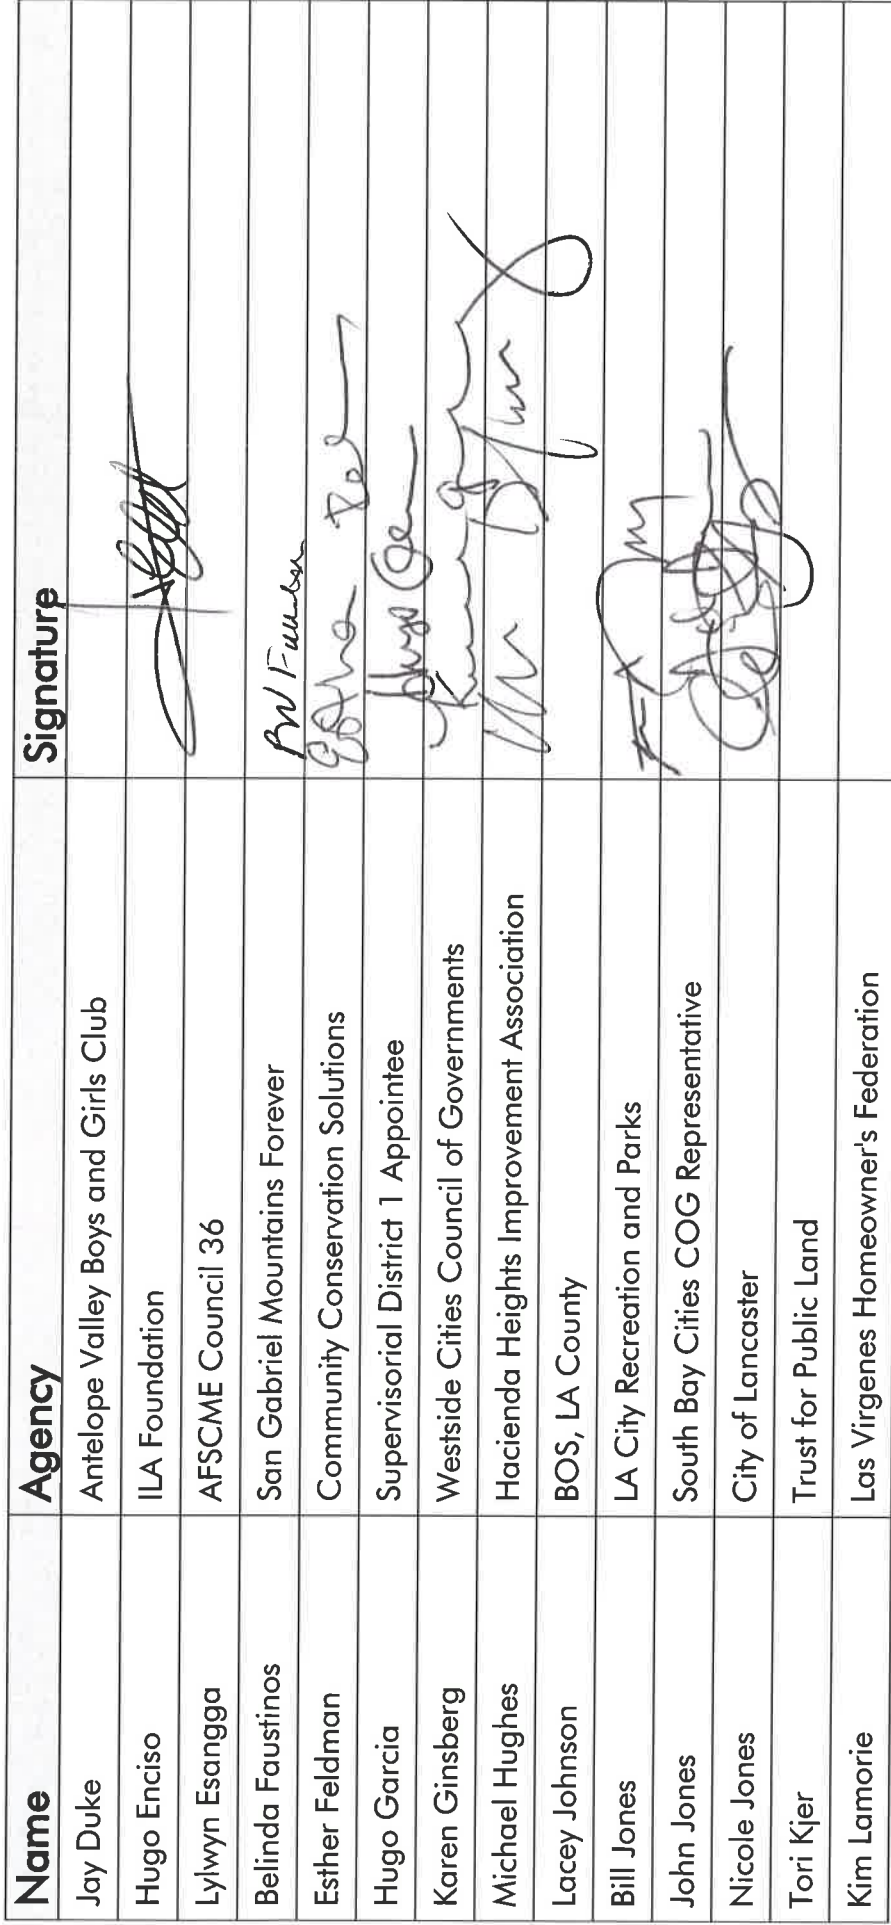 Name Agency Signature
Jay Duke Antelope Valley Boys and Girls Club
Hugo Enciso ILA Foundation
Lylwyn Esangga AFSCME Council 36
Belinda Faustinos San Gabriel Mountains Forever
Esther Feldman Community Conservation Solutions
Hugo Garcia Supervisorial District 1 Appointee Hugo
Karen Ginsberg Westside Cities Council of Governments
Michael Hughes Hacienda Heights Improvement Association
Lacey Johnson BOS, LA County
Bill Jones LA City Recreation and Parks
John Jones South Bay Cities COG Representative
Nicole Jones City of Lancaster
Tori Kjer Trust for Public Land
Kim Lamorie Las Virgenes Homeowner's Federation